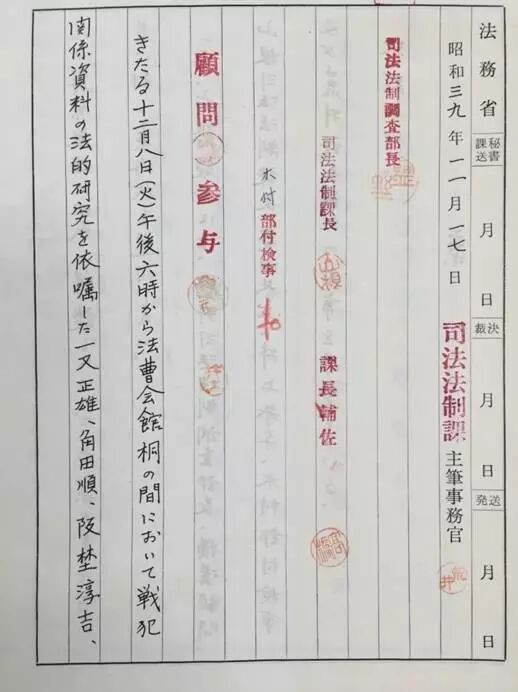 法務省 秘書課送 月 日 決裁 月 日 発送 月 日
昭和三九年一一月一七日 司法法制課 主筆事務官
司法法制調査部長
司法法制課長 課長輔佐
部付検事
顧問 参与
きたる十二月八日(火)午後六時から法曹会館桐の間において戦犯
関係資料の法的研究を依嘱した一又正雄、角田順、阪埜淳吉、